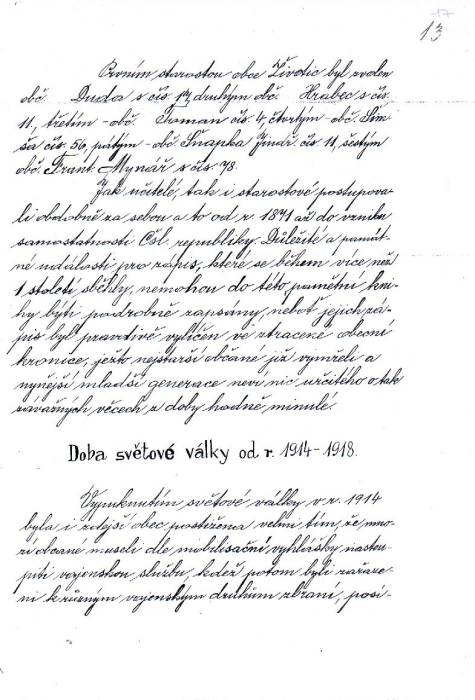 17
13
Prvním starostou obce Životic byl zvolen
obč. Duda s čís. 17, druhým obč. Hrabec s čís.
11, třetím - obč. Toman čís. 4, čtvrtým - obč. Sim-
sa čís. 56, pátým - obč. Šnapka Jinář. čís. 11, šestým
obč. Frant. Mynář s čís. 78.
Jak učitelé, tak i starostové postupova-
li obdobně za sebou a to od r. 1871 až do vzniku
samostatnosti Čsl. republiky. Důležité a památ-
né události pro zápis, které se během více než
1 století sběhly, nemohou do této pamětní kni-
hy býti podrobně zapsány, neboť jejich zá-
pis byl pravdivě vylíčen ve ztracené obecní
kronice, ježto nejstarší občané již vymřeli a
nynější mladší generace neví nic určitého o tak
závažných věcech z doby hodně minulé.
Doba světové války od r. 1914-1918.
Vypuknutím světové války v r. 1914
byla i zdejší obec postižena velmi tím, že mno-
zí občané museli dle mobilisační vyhlášky nastou-
piti vojenskou službu, kdež potom byli zařaze-
ni k různým vojenským druhům zbraní, posí-